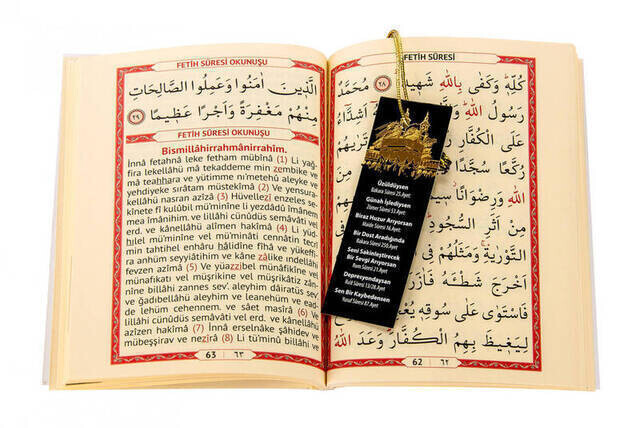 FETİH SÛRESİ
كُلِّهٖ وَكَفٰى بِاللّٰهِ شَهٖيدًا ﴿٢٨﴾ مُحَمَّدٌ
رَسُولُ اللّٰهِ اَشِدَّٓاءُ
عَلَى الْكُفَّارِ
رُكَّعًا سُجَّدًا
اللّٰهِ وَرِضْوَانًا
مِنْ اَثَرِ السُّجُودِ
التَّوْرٰيةِ وَمَثَلُهُمْ فِي
اَخْرَجَ شَطْـَٔهُ فَاٰزَرَهُ
فَاسْتَوٰى عَلٰى سُوقِهٖ
لِيَغٖيظَ بِهِمُ الْكُفَّارَ وَعَدَ اللّٰهُ
62 ٦٢
Üzüldüysen
Bakara Sûresi 25.Ayet
Günah İşlediysen
Zümer Sûresi 53.Ayet
Biraz Huzur Arıyorsan
Maide Sûresi 16.Ayet
Bir Dost Aradığında
Bakara Sûresi 256.Ayet
Seni Sakinleştirecek
Bir Sevgi Arıyorsan
Rum Sûresi 21.Ayet
Depresyondaysan
Ra'd Sûresi 13/28.Ayet
Sen Bir Kaybedensen
Yusuf Sûresi 87.Ayet
FETİH SÛRESİ OKUNUŞU
الَّذٖينَ اٰمَنُوا وَعَمِلُوا الصَّالِحَاتِ
مِنْهُمْ مَغْفِرَةً وَاَجْرًا عَظٖيمًا ﴿٢٩﴾
FETİH SÛRESİ OKUNUŞU
Bismillâhirrahmânirrahîm.
İnnâ fetahnâ leke fetham mübînâ (1) Li yağ-
fira lekellâhü mâ tekaddeme min zembike ve
mâ teahhara ve yütimme ni'metehû aleyke ve
yehdiyeke sırâtam müstekîmâ (2) Ve yensura-
kellâhü nasran azîzâ (3) Hüvellezî enzeles se-
kînete fî kulûbil mü'minîne li yezdâdû îmânem
mea îmânihim. ve lillâhi cünûdüs semâvâti vel
erd. ve kânellâhü alîmen hakîmâ (4) Li yüd-
hılel mü'minîne vel mü'minâti cennâtin tecrî
min tahtihel enhâru hâlidîne fîhâ ve yükeffi-
ra anhüm seyyiâtihim ve kâne zâlike ındellâhi
fevzen azîmâ (5) Ve yüazzibel münâfikîne vel
münâfikati vel müşrikîne vel müşrikâtiz zânnîne
billâhi zannes sev'. aleyhim dâiratüs sev'
ve ğadıbellâhü aleyhim ve leanehüm ve ead-
de lehüm cehennem. ve sâet masîrâ (6) Ve
lillâhi cünûdüs semâvâti vel erd. ve kânellâhü
azîzen hakîmâ (7) İnnâ erselnâke şâhidev ve
mübeşşirav ve nezîrâ (8) Li tü'minû billâhi ve
63 ٦٣